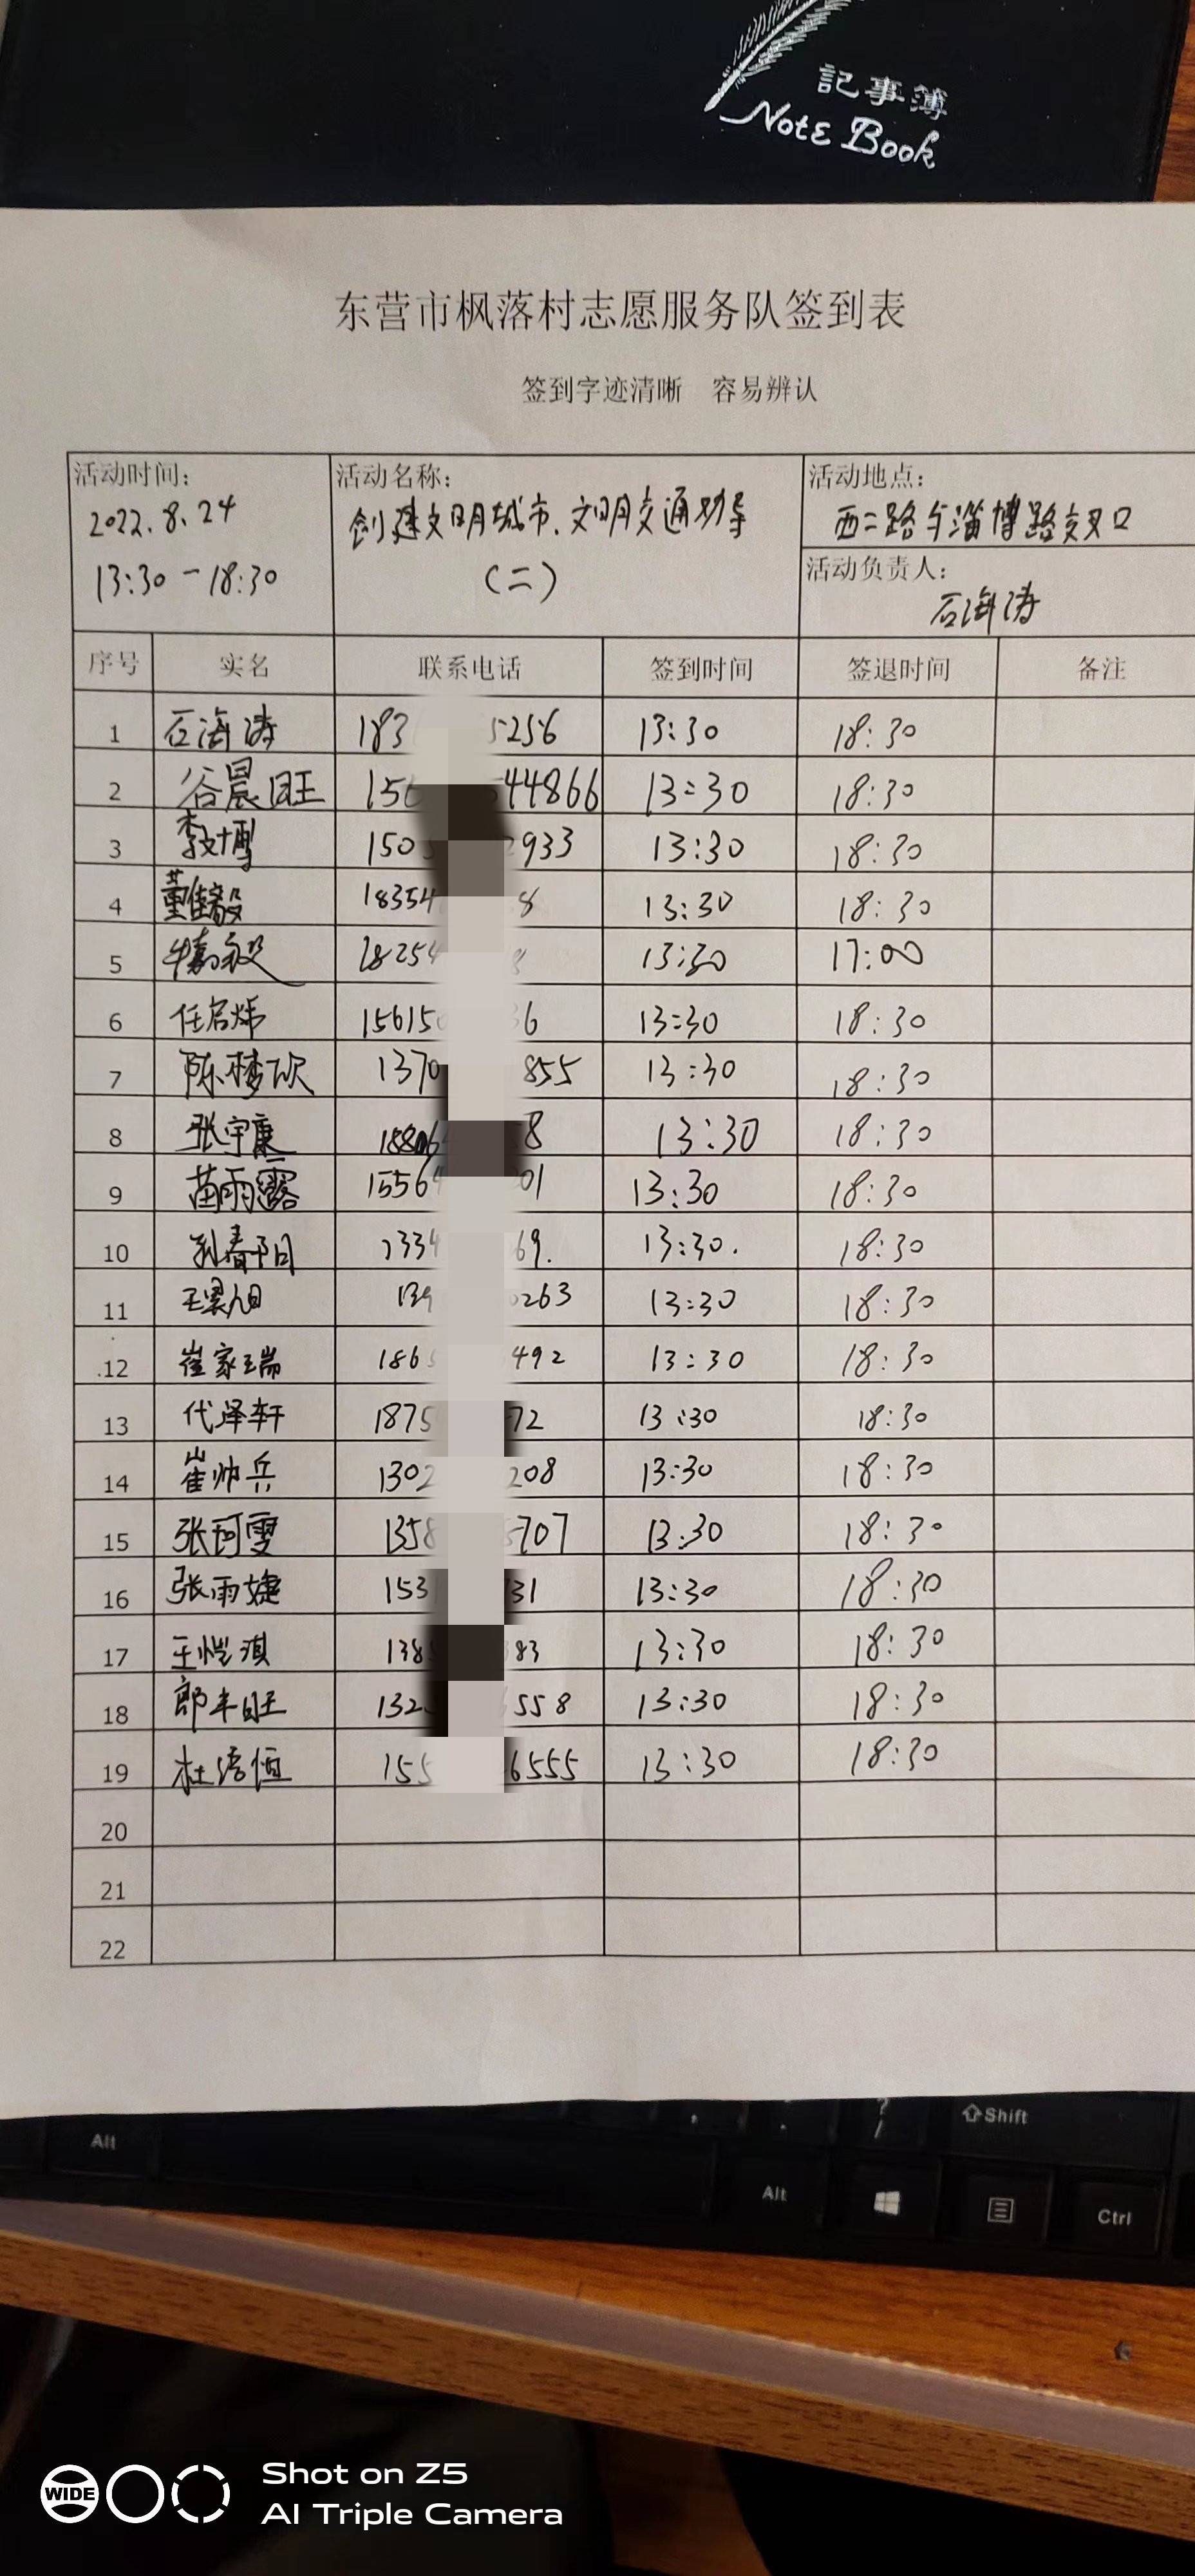 記事簿
Note Book
东营市枫落村志愿服务队签到表
签到字迹清晰 容易辨认
活动时间: 活动名称: 活动地点:
2022.8.24 创建文明城市、文明交通劝导 西二路与淄博路交叉口
13:30-18:30 (二) 活动负责人:
石海涛
序号 实名 联系电话 签到时间 签退时间 备注
1 石海涛 183 5256 13:30 18:30
2 谷晨旺 156 44866 13:30 18:30
3 李文博 150 2933 13:30 18:30
4 董 18354 8 13:30 18:30
5 18254 8 13:30 17:00
6 任启炜 15615 36 13:30 18:30
7 陈梦欣 1370 855 13:30 18:30
8 张宇康 8 13:30 18:30
9 苗雨露 1556 01 13:30 18:30
10 孙春阳 1334 69. 13:30. 18:30
11 139 0263 13:30 18:30
12 崔家瑞 186 492 13:30 18:30
13 代泽轩 1875 72 13:30 18:30
14 崔帅兵 1302 208 13:30 18:30
15 张珂雯 1358 5707 13:30 18:30
16 张雨婕 153 31 13:30 18:30
17 王恺淇 138 83 13:30 18:30
18 郎丰旺 132 6558 13:30 18:30
19 杜 恒 155 6555 13:30 18:30
20
21
22
, . ? / ⇧Shift
Alt Alt Ctrl
WIDE
Shot on Z5
AI Triple Camera